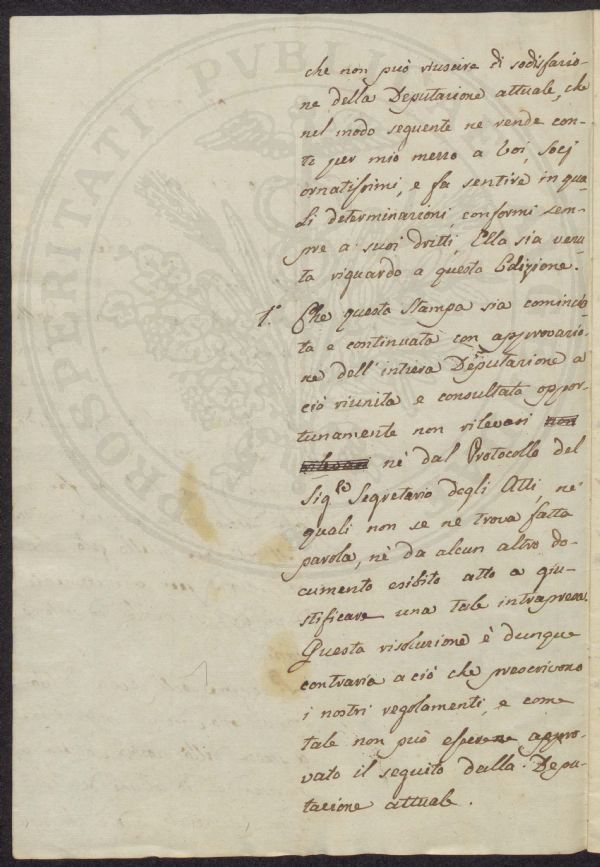 che non può riuscire di sodisfazio-
ne della Deputazione attuale, che
nel modo seguente ne rende con-
to per mio mezzo a Voi, Socj
ornatissimi, e fa sentire in qua-
li determinazioni, conformi sem-
pre a' suoi dritti, Ella sia venu-
ta riguardo a questa Edizione.
1.° Che questa Stampa sia comincia-
ta e continuata con approvazio-
ne dell' intiera Deputazione a
ciò riunita e consultata oppor-
tunamente non rilevasi non
nè dal Protocollo del
Sig.re Segretario degli Atti, ne'
quali non se ne trova fatta
parola, nè da alcun altro do-
cumento esibito atto a giu-
stificare una tale intrapresa.
Questa risoluzione è dunque
contraria a ciò che prescrivono
i nostri regolamenti, e come
tale non può esserne appro-
vato il seguito dalla Depu-
tazione attuale.
PROSPERITATI PVBLI